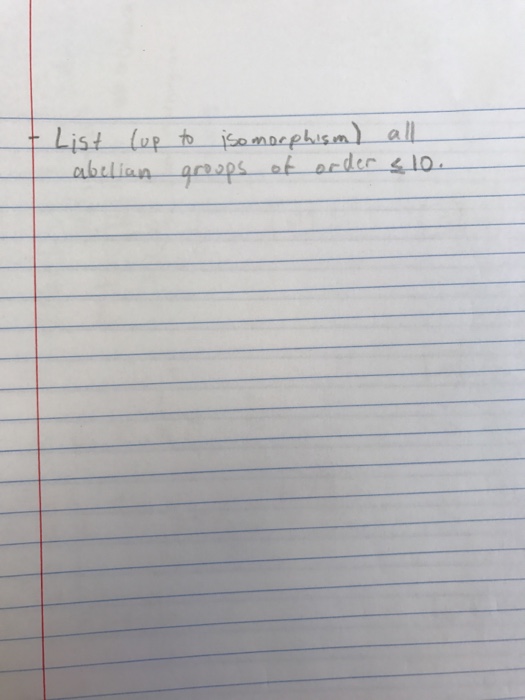 - List (up to isomorphism) all
abelian groups of order ≤ 10.